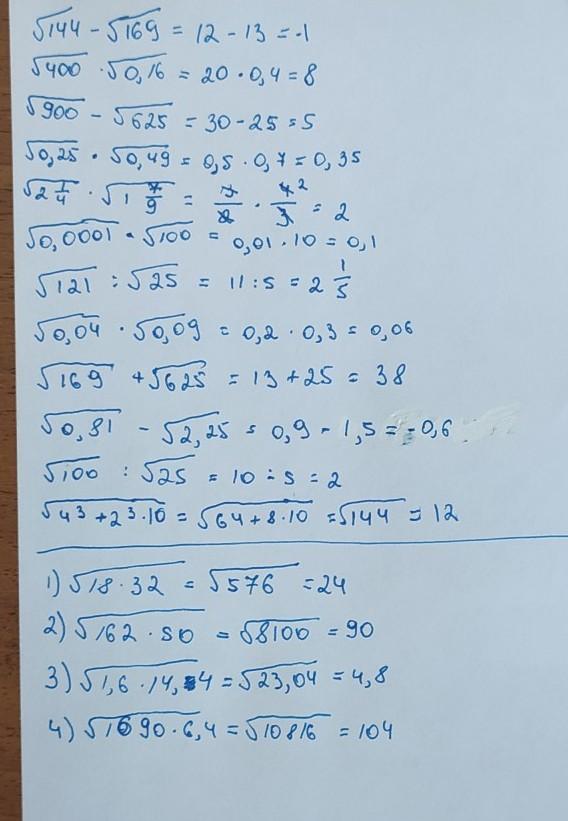 √144 - √169 = 12 - 13 = -1
√400 · √0,16 = 20 · 0,4 = 8
√900 - √625 = 30 - 25 = 5
√0,25 · √0,49 = 0,5 · 0,7 = 0,35
√2 1/4 · √1 7/9 = 3/2 · 4/3 ² = 2
√0,0001 · √100 = 0,01 · 10 = 0,1
√121 : √25 = 11 : 5 = 2 1/5
√0,04 · √0,09 = 0,2 · 0,3 = 0,06
√169 + √625 = 13 + 25 = 38
√0,81 - √2,25 = 0,9 - 1,5 = -0,6
√100 : √25 = 10 ÷ 5 = 2
√4³ + 2³ · 10 = √64 + 8 · 10 = √144 = 12
1) √18 · 32 = √576 = 24
2) √162 · 50 = √8100 = 90
3) √1,6 · 14,4 = √23,04 = 4,8
4) √1690 · 6,4 = √10816 = 104